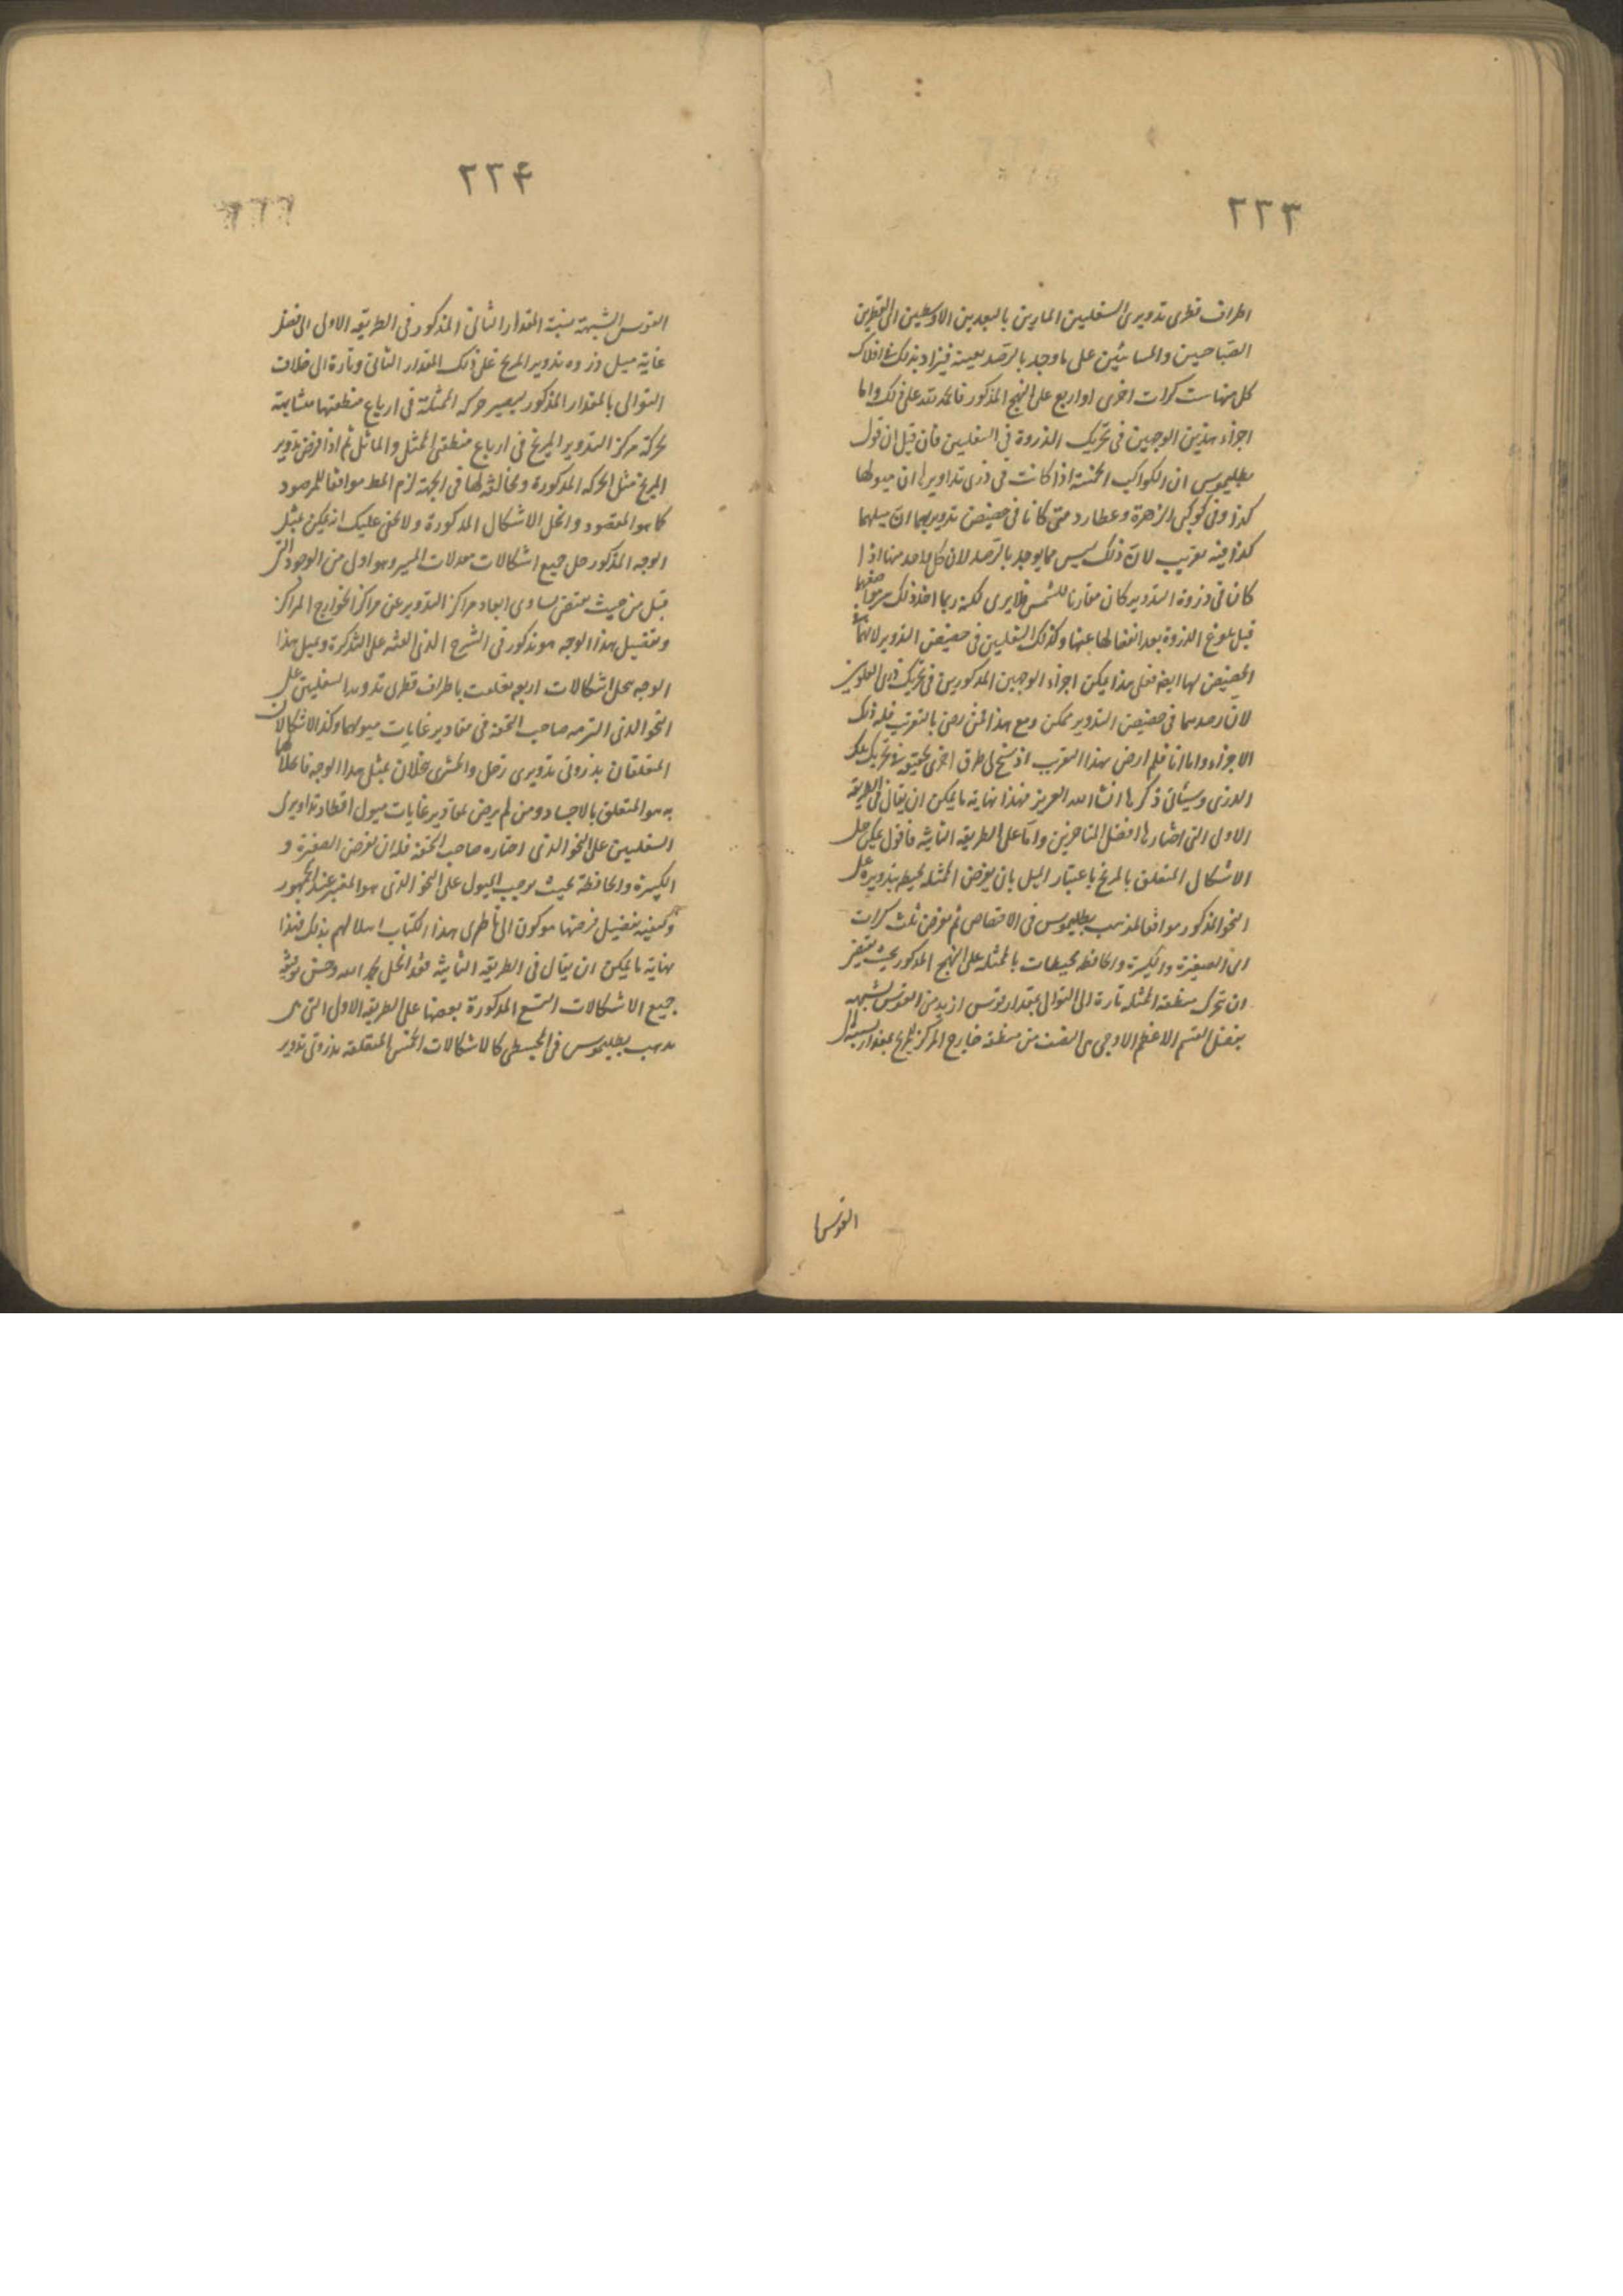 ٢٢٣
اطراف قطری تدویری السفلیین المارین بالبعدین الاوسطین الی القطرین
الصباحیین والمسائیین علی ماوجد بالرصد بعینه فیزاد بذلک فی افلاک
کل منها ست کرات اخری او اربع علی النهج المذکور فالحمد لله علی ذلک واما
اجراء هذین الوجهین فی تحریک الذروة فی السفلیین فان قیل ان قول
بطلیموس ان الکواکب الخمسة اذا کانت فی ذری تداویرها ان میولها
کذا وفی کوکبی الزهرة وعطارد متی کانا فی حضیض تدویریهما ان میلهما
کذا فیه تقریب لان ذلک لیس مما یوجد بالرصد لان کل واحد منها اذا
کان فی ذروة التدویر کان مقارنا للشمس فلا یری لکنه ربما اخذ ذلک من مواضعها
قبل بلوغ الذروة بعد انفصالها عنها وکذلک السفلیین فی حضیض التدویر لانهما
الحضیض لها ایضا فعلی هذا یمکن اجراء الوجهین المذکورین فی تحریک ذری العلویین
لان رصدهما فی حضیض التدویر ممکن ومع هذا فمن رضی بالتقریب فله ذلک
الاجراء واما انا فلم ارض بهذا التقریب اذ سنح لی طرق اخری تحقیقیة فی تحریک تلک
الذری وسیأتی ذکرها انشاء الله العزیز فهذا نهایة ما یمکن ان یقال فی الطریقة
الاولی التی اختارها افضل المتاخرین واما علی الطریقة الثانیة فاقول یمکن حل
الاشکال المتعلق بالمریخ باعتبار المیل بان یفرض الممثلة محیطة بتدویره علی
النحو المذکور موافقا لمذهب بطلیموس فی الاقتصاص ثم یفرض ثلث کرات
ای الصغیرة والکبیرة والحافظة محیطات بالممثلة علی النهج المذکور بحیث یقتضی
ان تحرک منطقة الممثلة تارة الی التوالی بمقدار قوس ازید من القوس الشبیهة
بفضل القسم الاعظم الاوجی علی النصف من منطقة خارج المرکز للمریخ بمقدار نسبته الی
القوس
٢٢۴
القوس الشبیهة نسبة المقدار الثانی المذکور فی الطریقة الاولی الی فضل
غایة میل ذروة تدویر المریخ علی ذلک المقدار الثانی وتارة الی خلاف
التوالی بالمقدار المذکور لیصیر حرکة الممثلة فی ارباع منطقتها مشابهة
لحرکة مرکز التدویر المریخ فی ارباع منطقتی الممثل والمائل ثم اذا فرض تدویر
المریخ مثل الحرکة المذکورة ومخالفة لها فی الجهة لزم المط موافقا للمرصود
کما هو المقصود وانحل الاشکال المذکورة ولا یخفی علیک انه یمکن بمثل
الوجه المذکور حل جمیع اشکالات معدلات المسیر وهو اولی من الوجوه التی
قبل من حیث یقتضی تساوی ابعاد مراکز التدویر عن مراکز الخوارج المراکز
وتفصیل هذا الوجه مذکور فی الشرح الذی الفته علی التذکرة وبمثل هذا
الوجه یحل اشکالات اربعة تعلقت باطراف قطری تدویرا السفلیین علی
النحو الذی التزمه صاحب التحفة فی مقادیر غایات میولها وکذا الاشکالان
المتعلقان بذروتی تدویری زحل والمشتری یحلان بمثل هذا الوجه فاعلاها
به هو المتعلق بالاجساد ومن لم یرض بمقادیر غایات میول اقطار تداویری
السفلیین علی النحو الذی اختاره صاحب التحفة فله ان یفرض الصغیرة و
الکبیرة والحافظة بحیث یوجب المیول علی النحو الذی هو المعتبر عند الجمهور
وکیفیة تفصیل فرضها موکول الی ناظری هذا الکتاب اسلاء لهم بذلک فهذا
نهایة ما یمکن ان یقال فی الطریقة الثانیة فقد انحل بحمد الله وحسن توفیقه
جمیع الاشکالات التسع المذکورة بعضها علی الطریقة الاولی التی هی
مذهب بطلیموس فی المجسطی کالاشکالات الخمس المتعلقة بذروتی تدویر